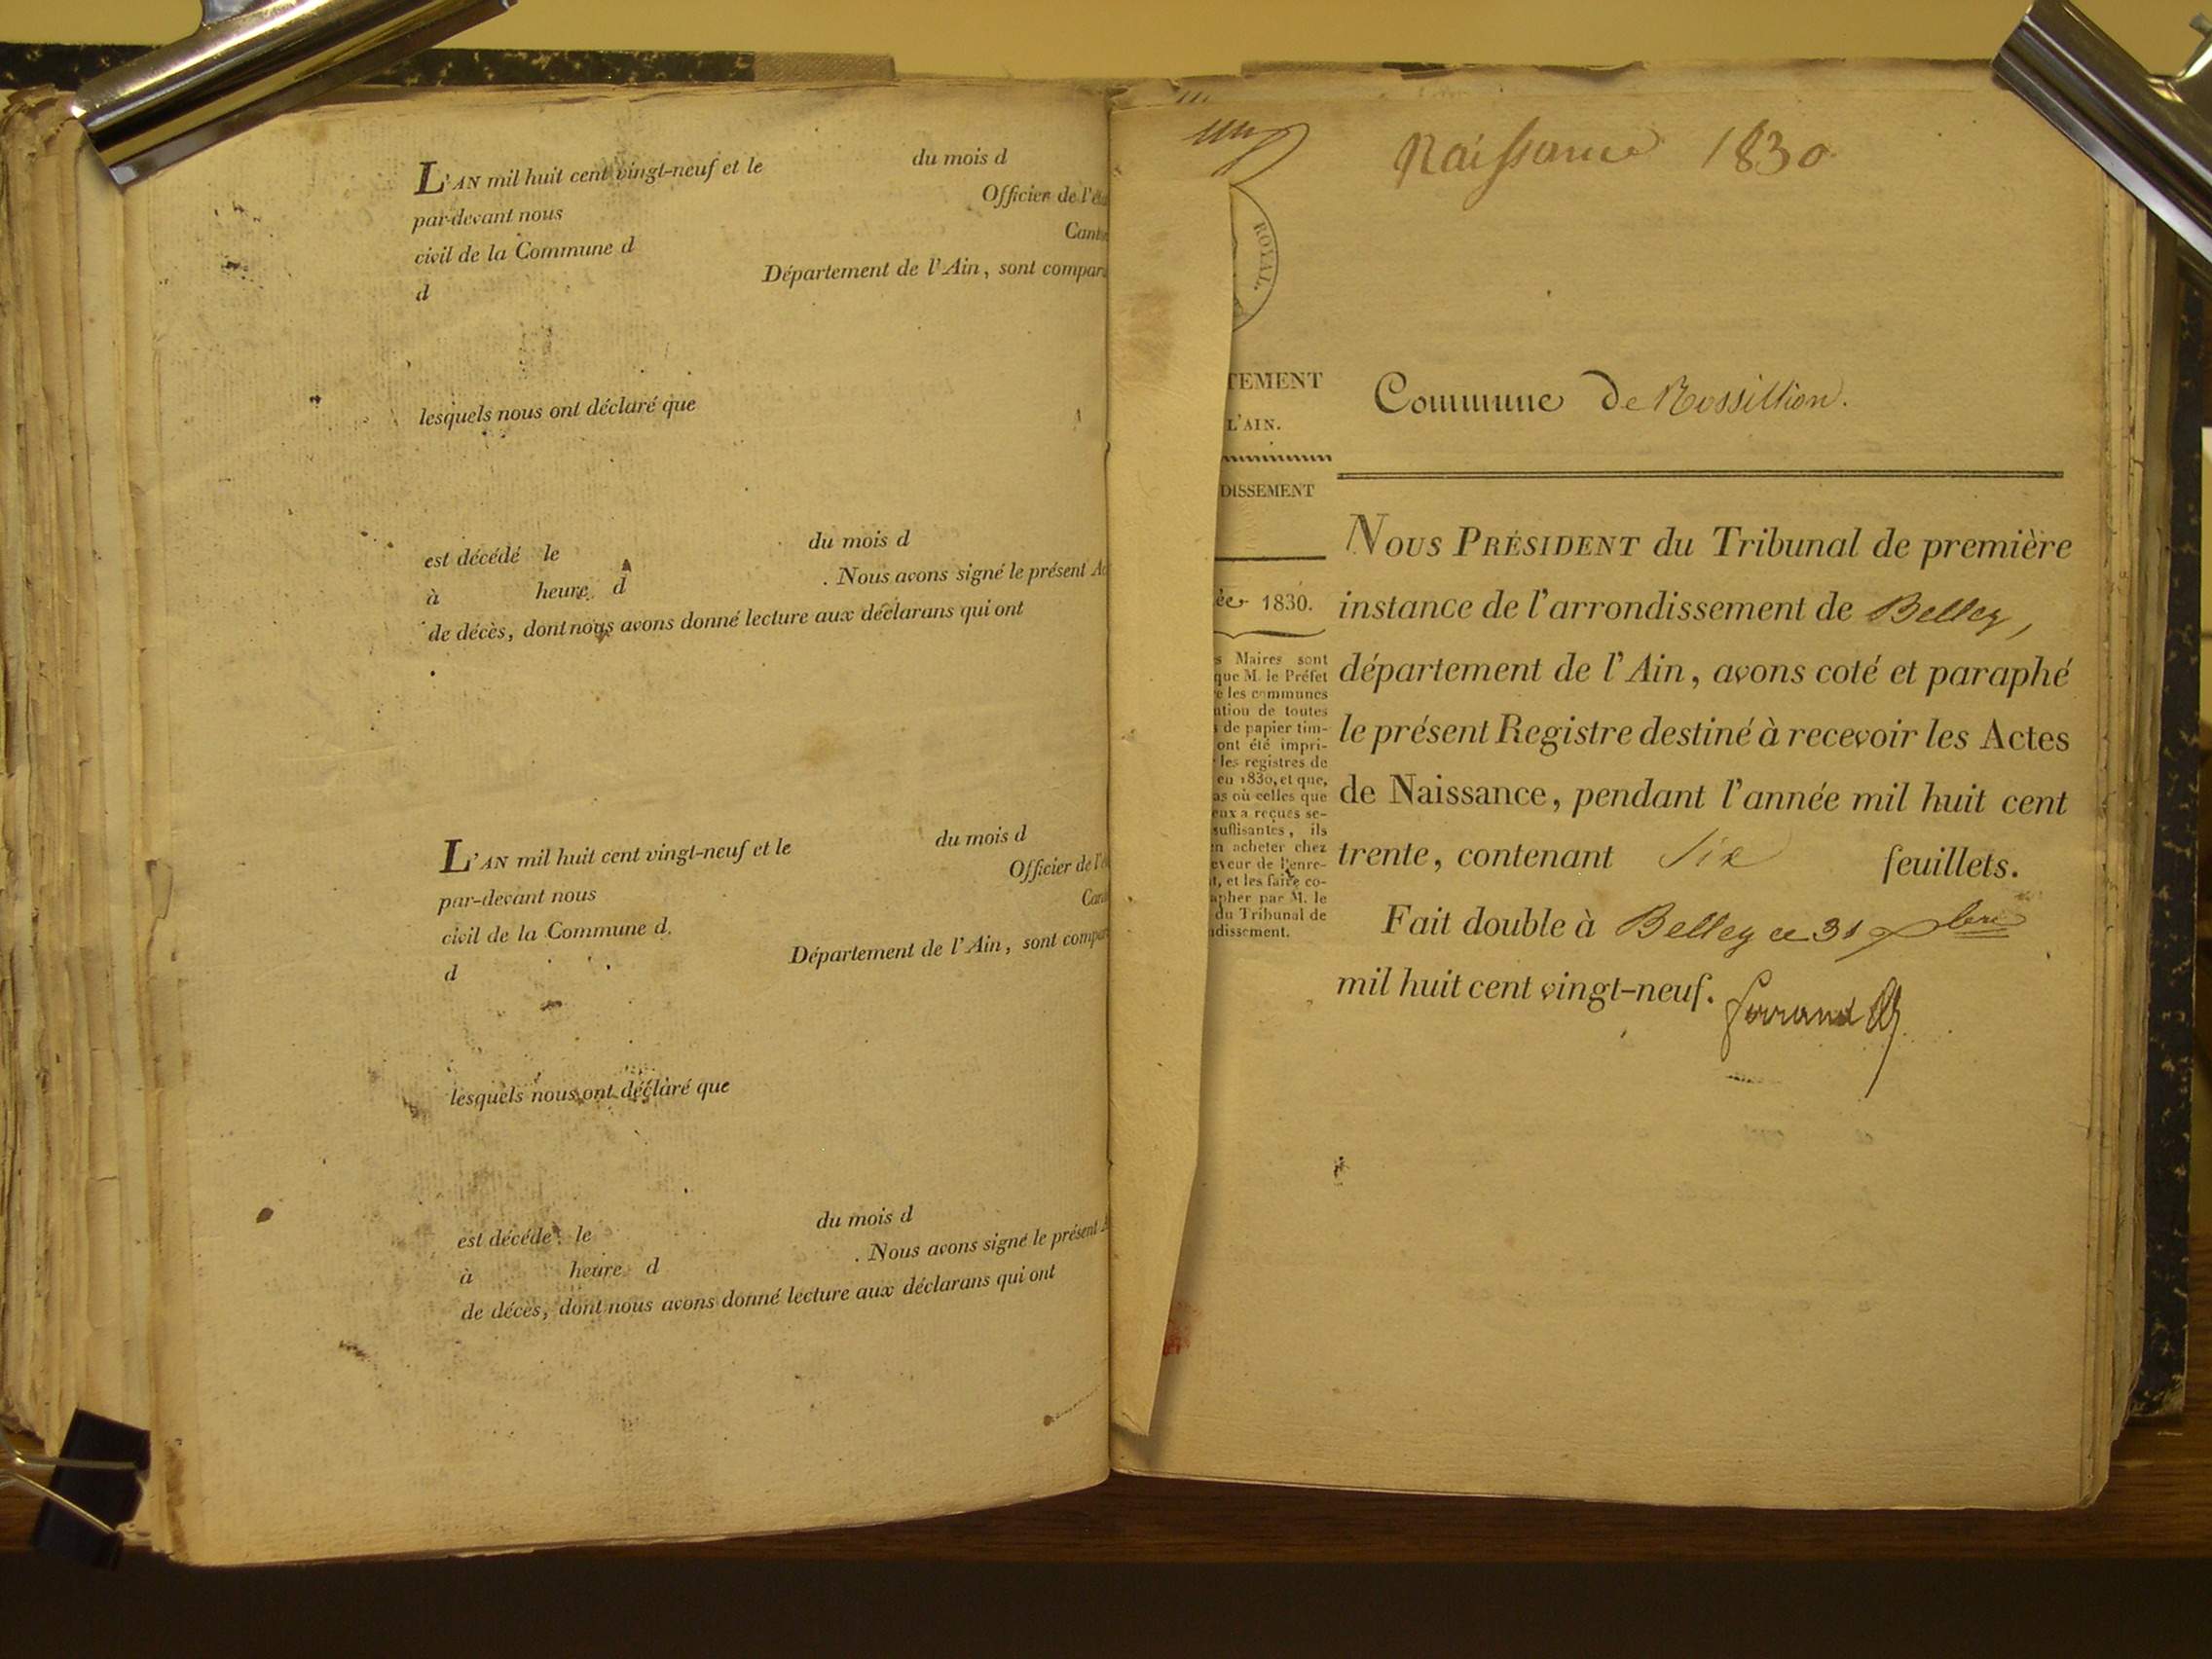 L'AN mil huit cent vingt-neuf et le du mois d
par-devant nous Officier de l'é
civil de la Commune d Cant
d Département de l'Ain, sont compar
lesquels nous ont déclaré que
est décédé le du mois d
à heure d . Nous avons signé le présent Ac
de décès, dont nous avons donné lecture aux déclarans qui ont
L'AN mil huit cent vingt-neuf et le du mois d
par-devant nous Officier de l'é
civil de la Commune d. Can
d Département de l'Ain, sont compar
lesquels nous ont déclaré que
est décédé le du mois d
à heure d . Nous avons signé le présent A
de décès, dont nous avons donné lecture aux déclarans qui ont
Naissance 1830
ROYAL.
TEMENT
L'AIN.
DISSEMENT
ée 1830.
s Maires sont
que M. le Préfet
e les communes
ation de toutes
s de papier tim-
ont été impri-
les registres de
en 1830, et que,
as où celles que
eux a reçues se-
suffisantes, ils
en acheter chez
eveur de l'enre-
t, et les faire co-
apher par M. le
du Tribunal de
ndissement.
Commune De Rossillion.
NOUS PRÉSIDENT du Tribunal de première
instance de l'arrondissement de Belley,
département de l'Ain, avons coté et paraphé
le présent Registre destiné à recevoir les Actes
de Naissance, pendant l'année mil huit cent
trente, contenant Six feuillets.
Fait double à Belley ce 31 Xbre
mil huit cent vingt-neuf.